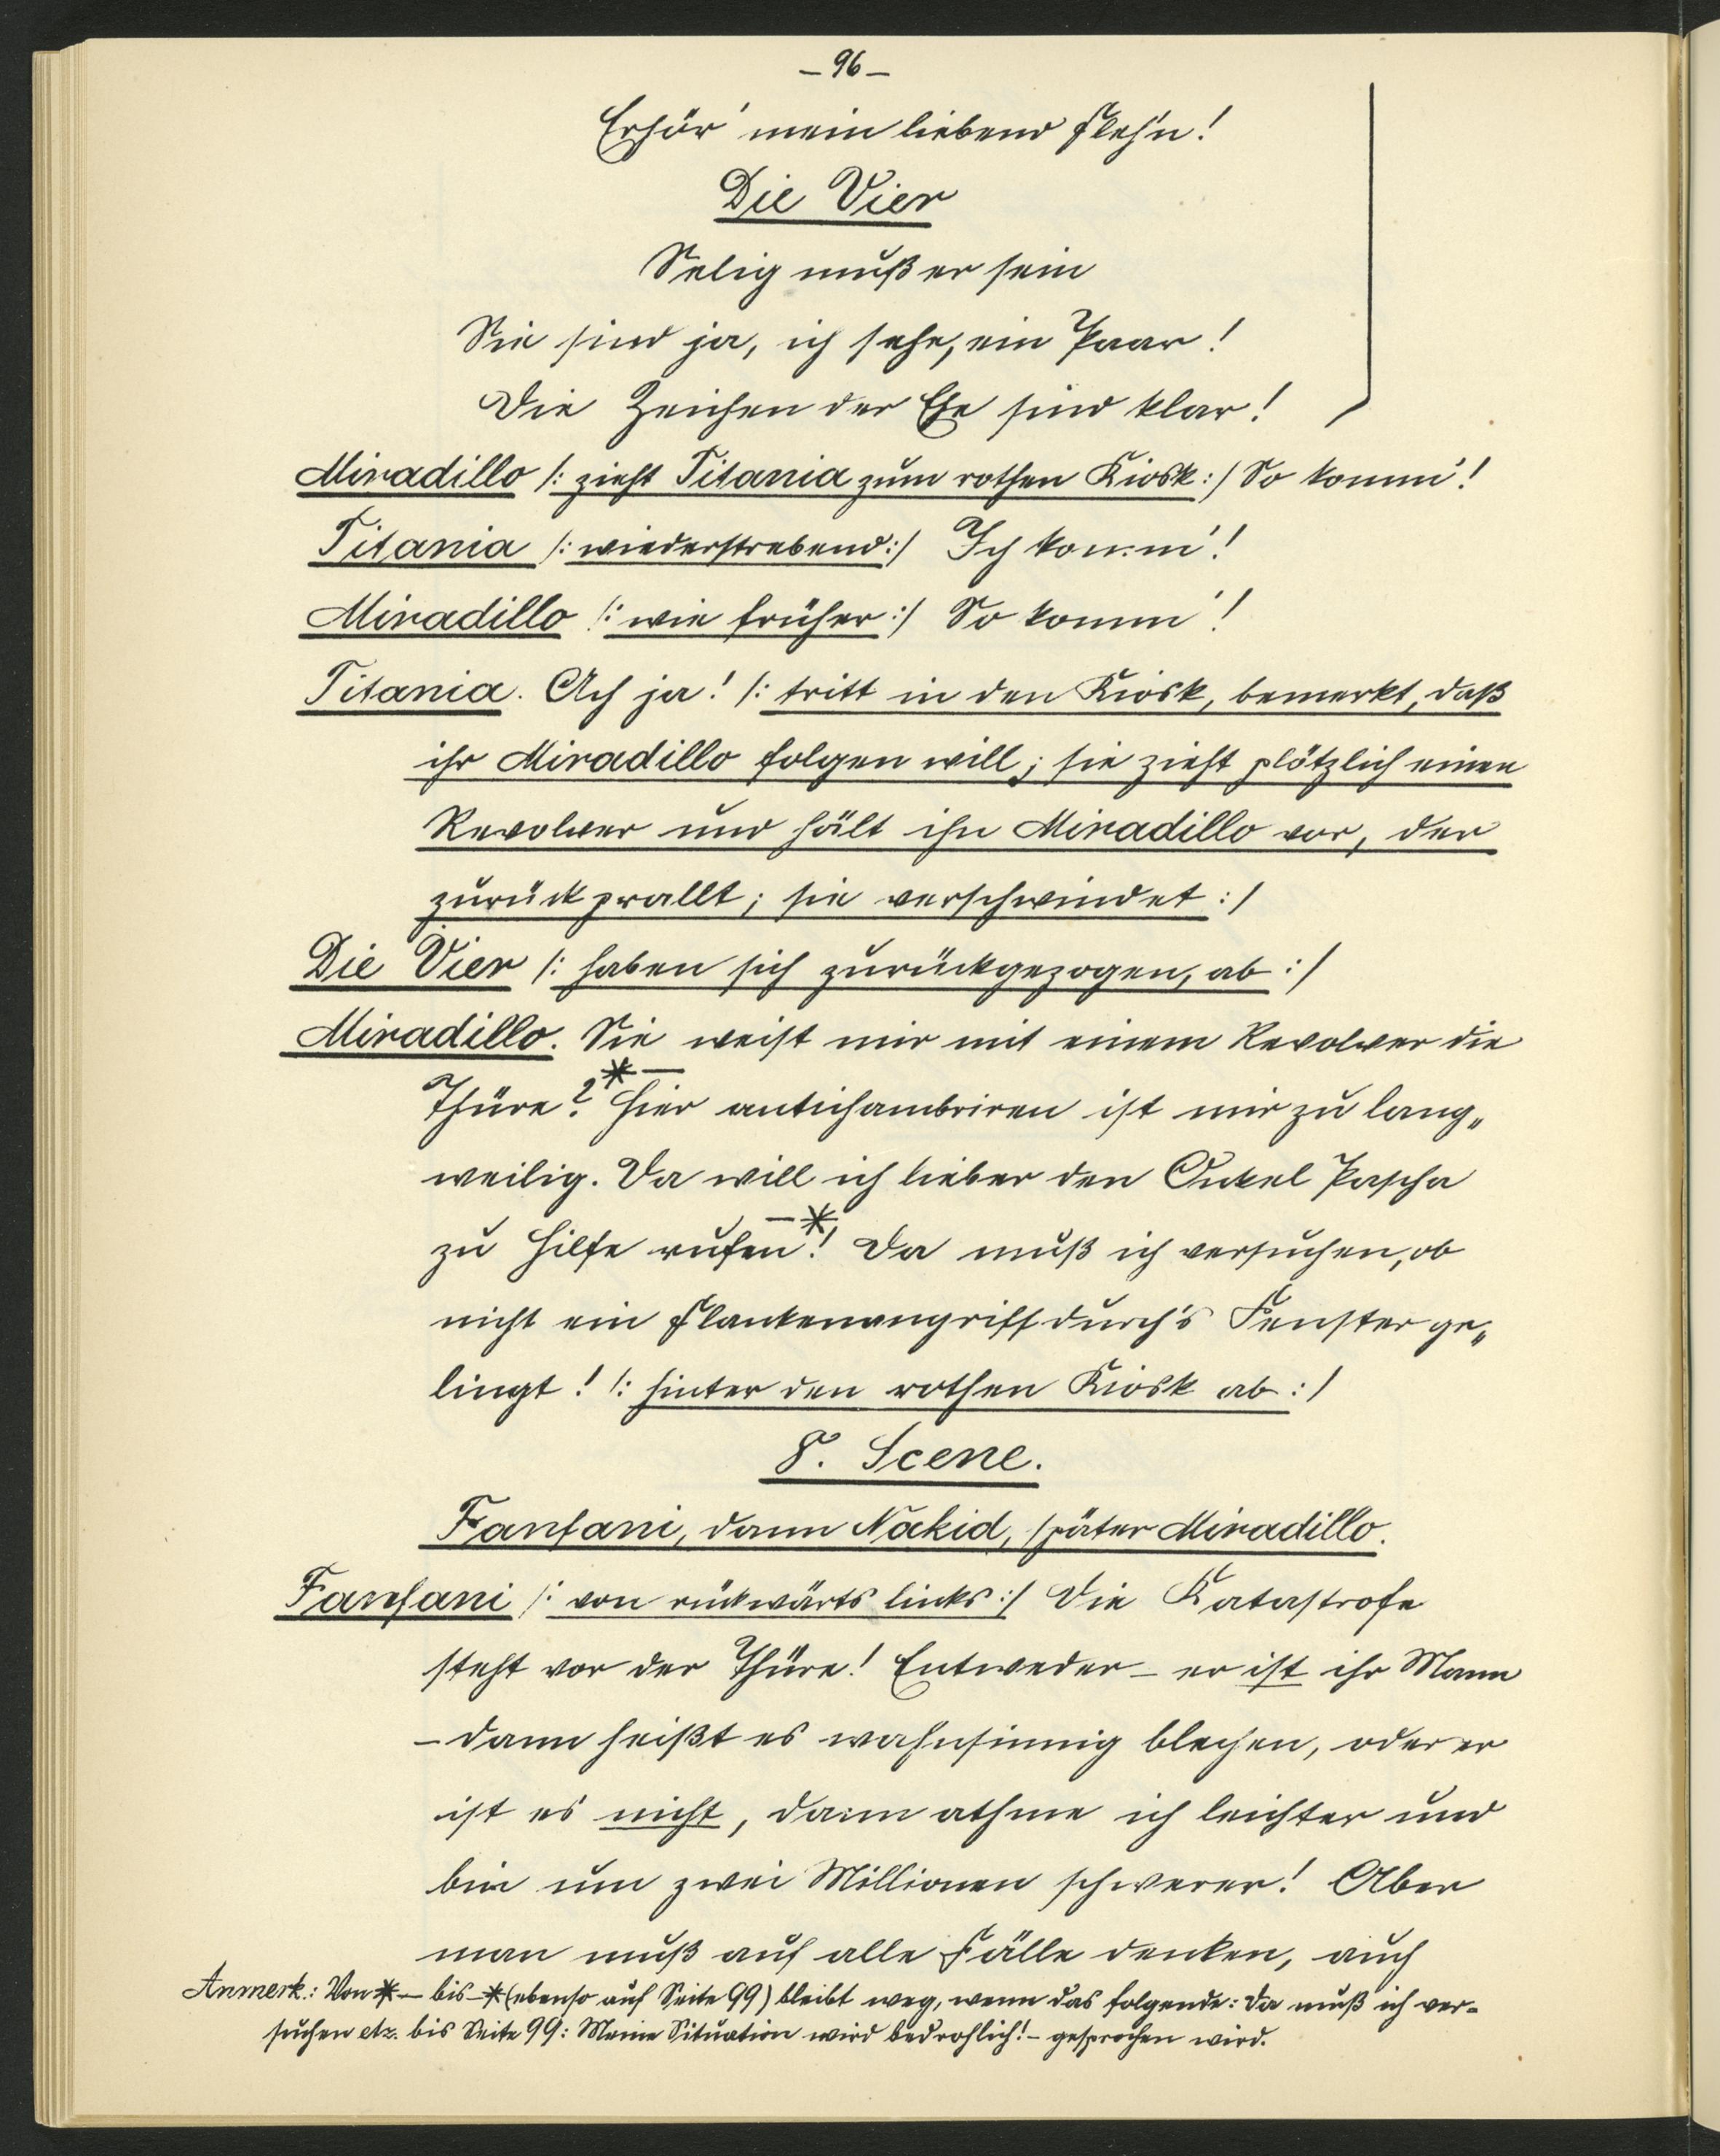 – 96 –
Erhör' mein liebend Fleh'n!
Die Vier
Selig muß er sein
Sie sind ja, ich sehe, ein Paar!
Die Zeichen der Ehe sind klar!
Miradillo /: zieht Titania zum rothen Kiosk :/ So komm'!
Titania /: wiederstrebend :/ Ich komm'!
Miradillo /: wie früher :/ So komm'!
Titania. Ach ja! /: tritt in den Kiosk, bemerkt, daß
ihr Miradillo folgen will; sie zieht plötzlich einen
Revolver und hält ihn Miradillo vor, der
zurückprallt; sie verschwindet :/
Die Vier /: haben sich zurückgezogen, ab :/
Miradillo. Sie weist mir mit einem Revolver die
Thüre? *— Hier antichambriren ist mir zu lang„
weilig. Da will ich lieber den Onkel Pascha
zu Hilfe rufen! —* Da muß ich versuchen, ob
nicht ein Flankenangriff durch's Fenster ge„
lingt! /: hinter den rothen Kiosk ab :/
8. Scene.
Fanfani, dann Nakid, später Miradillo.
Fanfani /: von rückwärts links :/ Die Katastrofe
steht vor der Thüre! Entweder – er ist ihr Mann
– dann heißt es wahnsinnig blechen, oder er
ist es nicht, dann athme ich leichter und
bin um zwei Millionen schwerer! Aber
man muß auf alle Fälle denken, auch
Anmerk.: Von *— bis —* (ebenso auf Seite 99) bleibt weg, wenn das folgende: Da muß ich ver-
suchen etz. bis Seite 99: Meine Situation wird bedrohlich! – gesprochen wird.